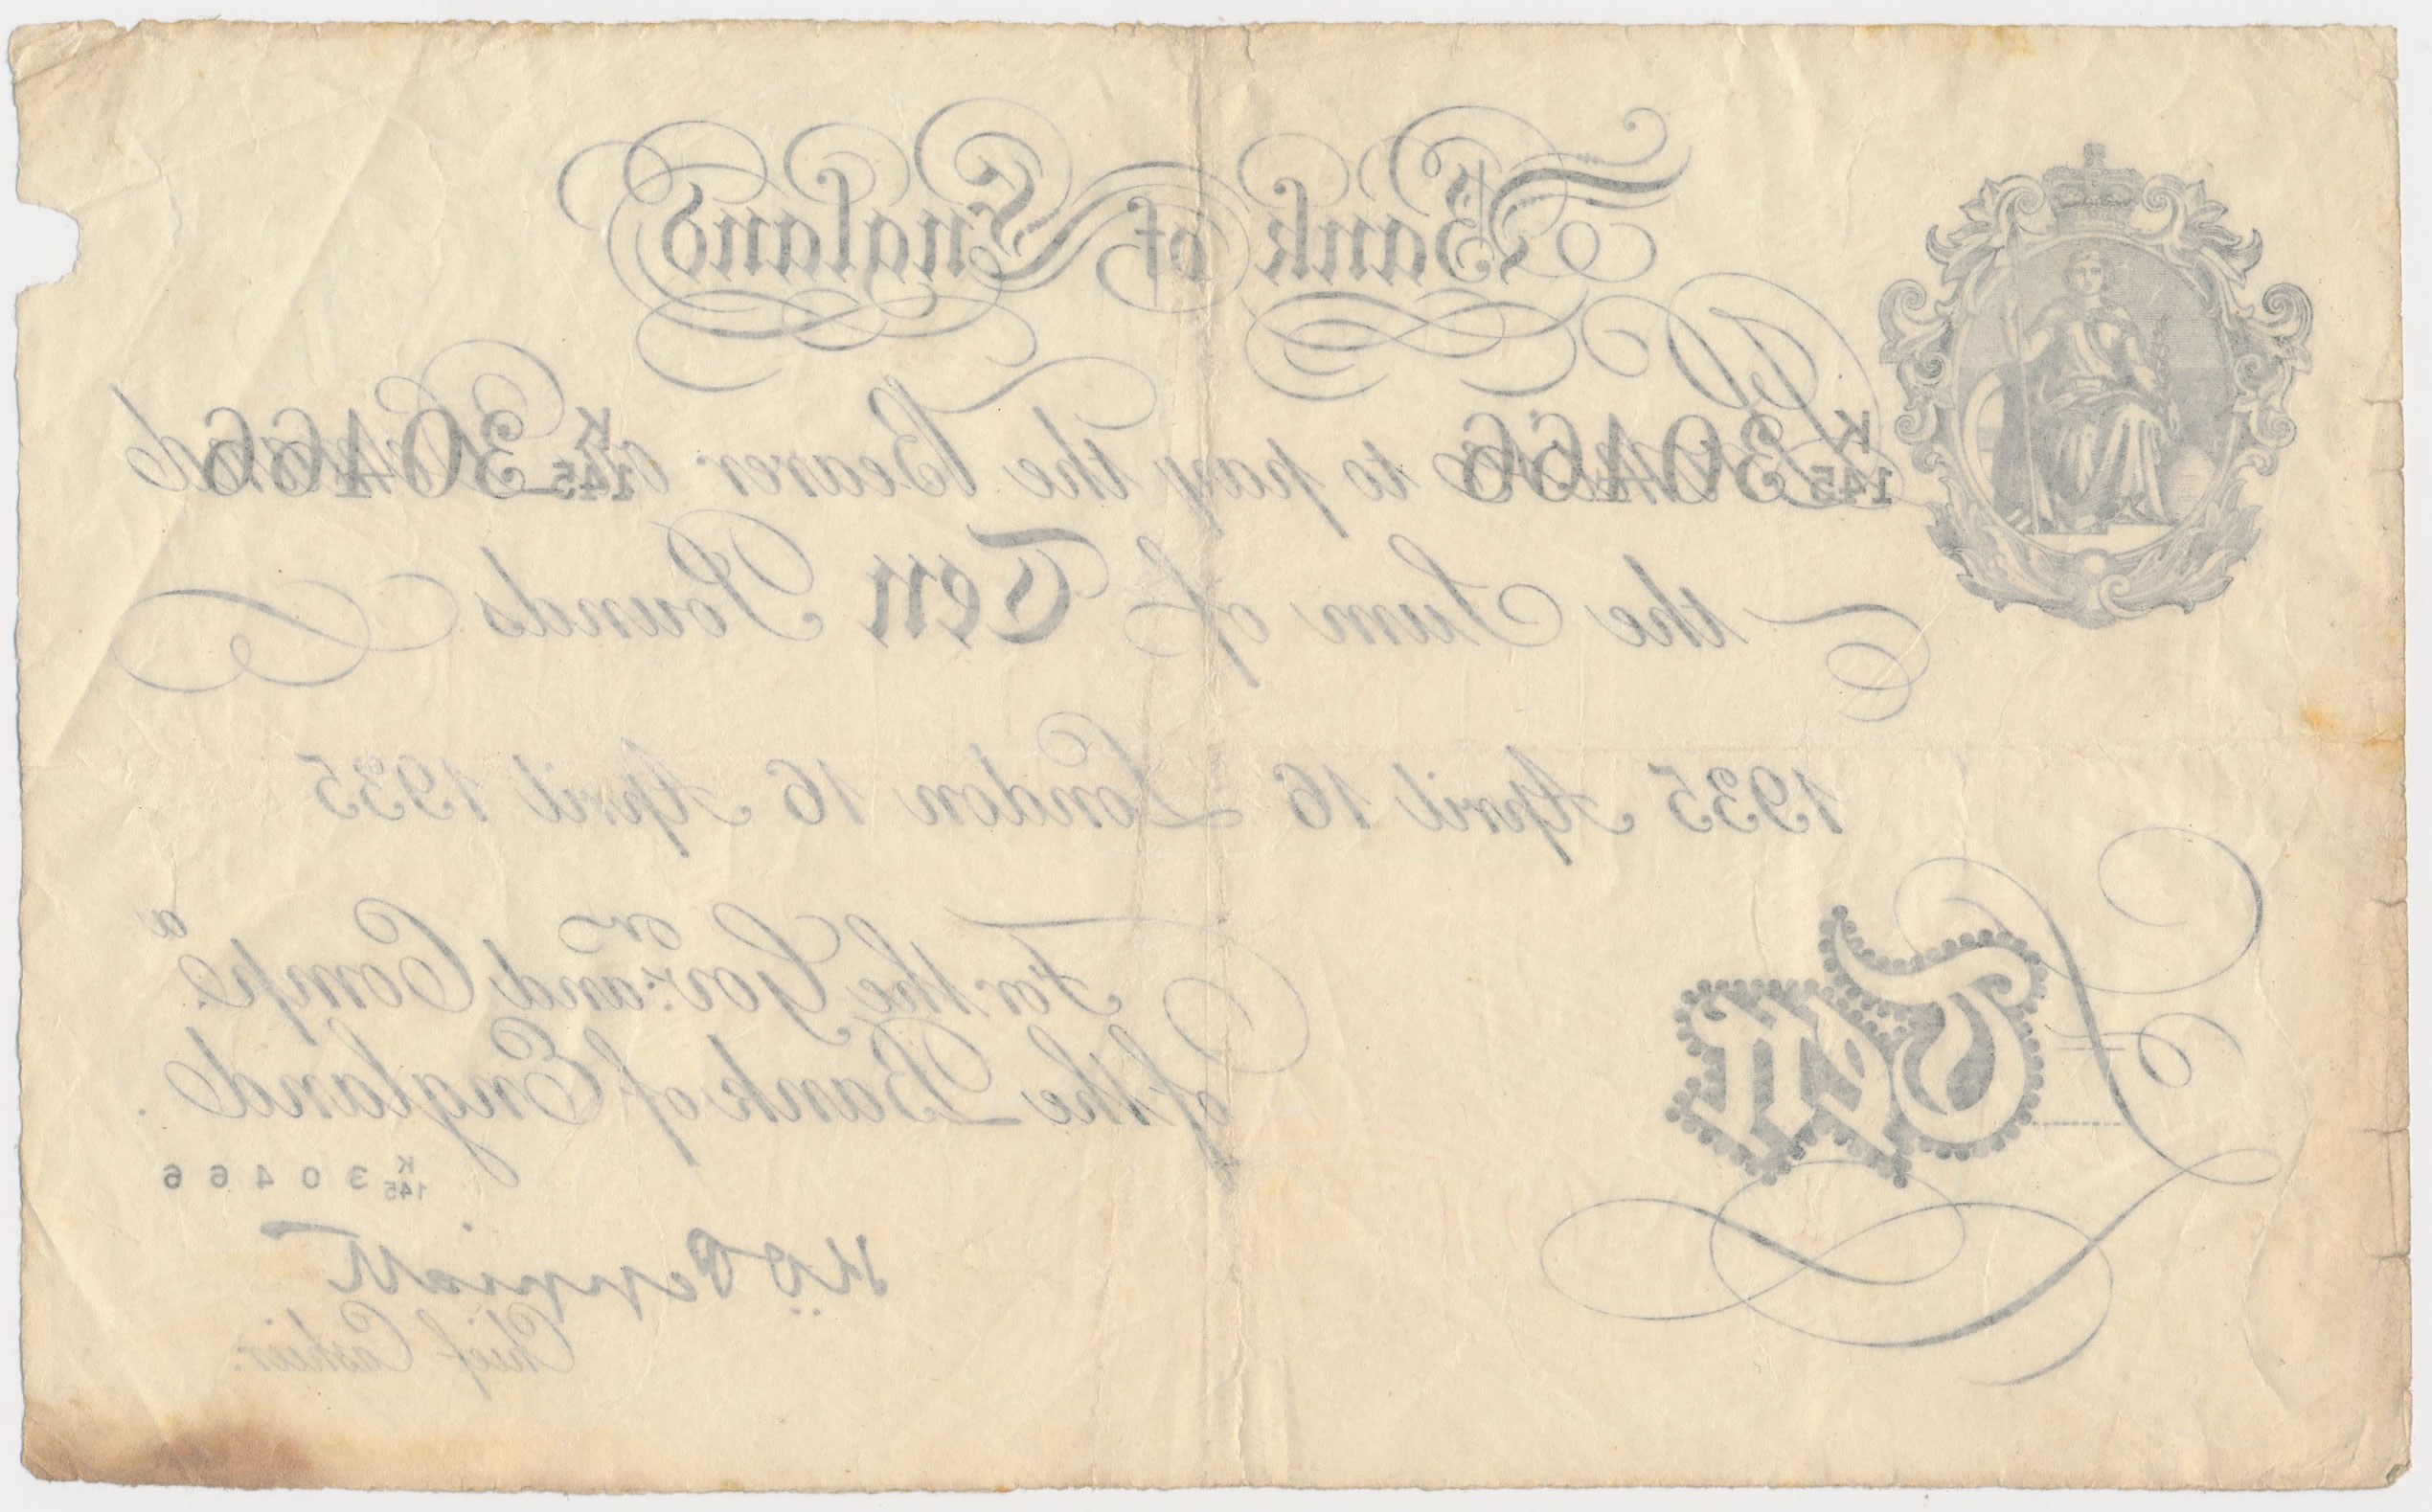 Bank of England
K/145 30466 K/145 30466
Promise to pay the Bearer on Demand
the Sum of Ten Pounds
1935 April 16 London 16 April 1935
For the Gov.or and Comp.a
of the Bank of England.
K/145 30466
£Ten
Chief Cashier.